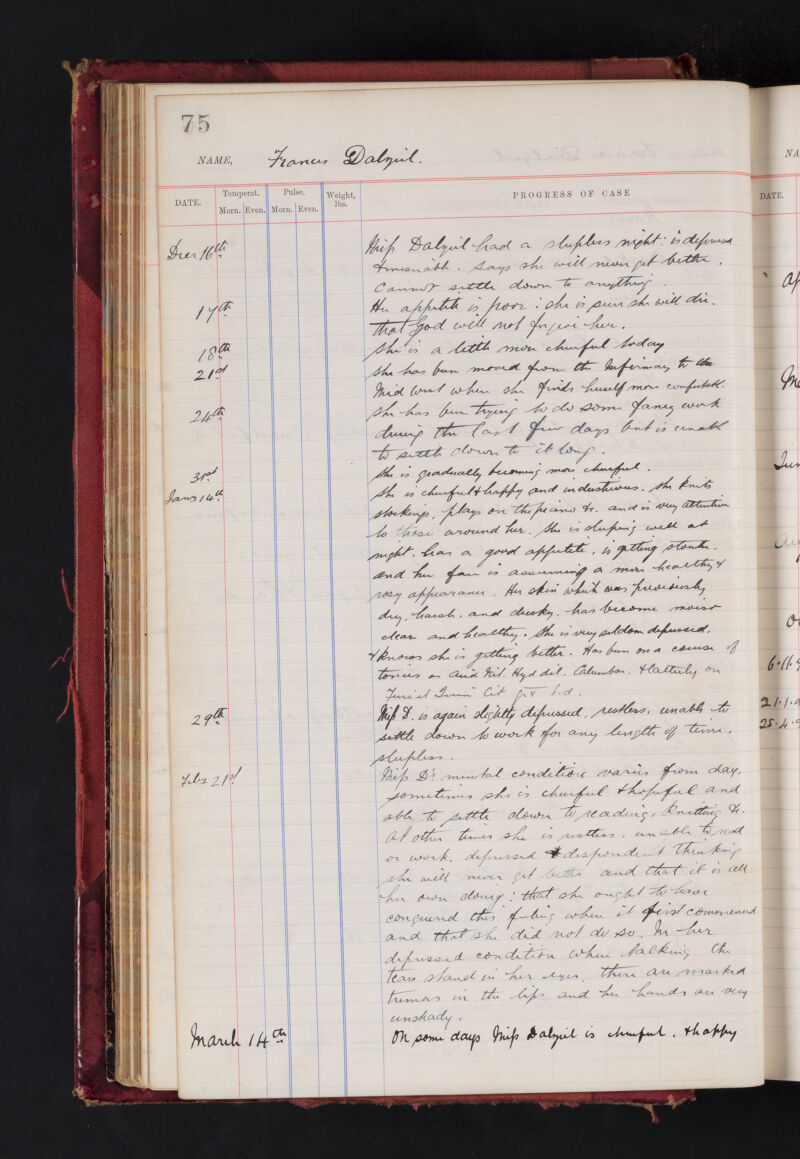 75
NAME, Frances Dalziel.
DATE. Temperat. Morn. Even. Pulse. Morn. Even. Weight, lbs. PROGRESS OF CASE
Decr 16th Miss Dalziel had a sleepless night: is depressed
& miserable. Says she will never get better.
Cannot settle down to anything.
17th Her appetite is poor: she is sure she will die.
That God will not forgive her.
18th She is a little more cheerful today
21st She has been moved from the Infirmary to the
Mid West where she finds herself more comfortable.
24th She has been trying to do some fancy work
during the last few days but is unable
to settle down to it long.
31st She is gradually becoming more cheerful.
Jany 14th She is cheerful & happy and industrious. She knits
stockings, plays on the piano &c. and is very attentive
to those around her. She is sleeping well at
night. has a good appetite, is getting stouter.
and her face is assuming a more healthy &
rosy appearance. Her skin which was previously
dry, harsh, and dusky. has become moist
clear and healthy. She is very seldom depressed.
& knows she is getting better. Has been on a course of
tonics as Acid Nit. Hyd dil. Calumbae. & latterly on
Ferri et Quin Cit gr v t.d.
29th Miss D. is again slightly depressed, restless, unable to
settle down to work for any length of time.
sleepless.
Feby 21st Miss D's mental condition varies from day,
sometimes she is cheerful & hopeful and
able to settle down to reading, knitting &c.
At other times she is restless. unable to read
or work. depressed & despondent thinking
she will never get better and that it is all
her own doing: that she ought to have
conquered this feeling when it first commenced
and that she did not do so. In her
depressed condition when talking the
tears stand in her eyes, there are marked
tremors in the lips, and her hands are very
unsteady.
March 14th On some days Miss Dalziel is cheerful. & happy
NA
DATE.
Ap
Me
Jun
Au
O
6.11.9
21.1.9
25.4.9